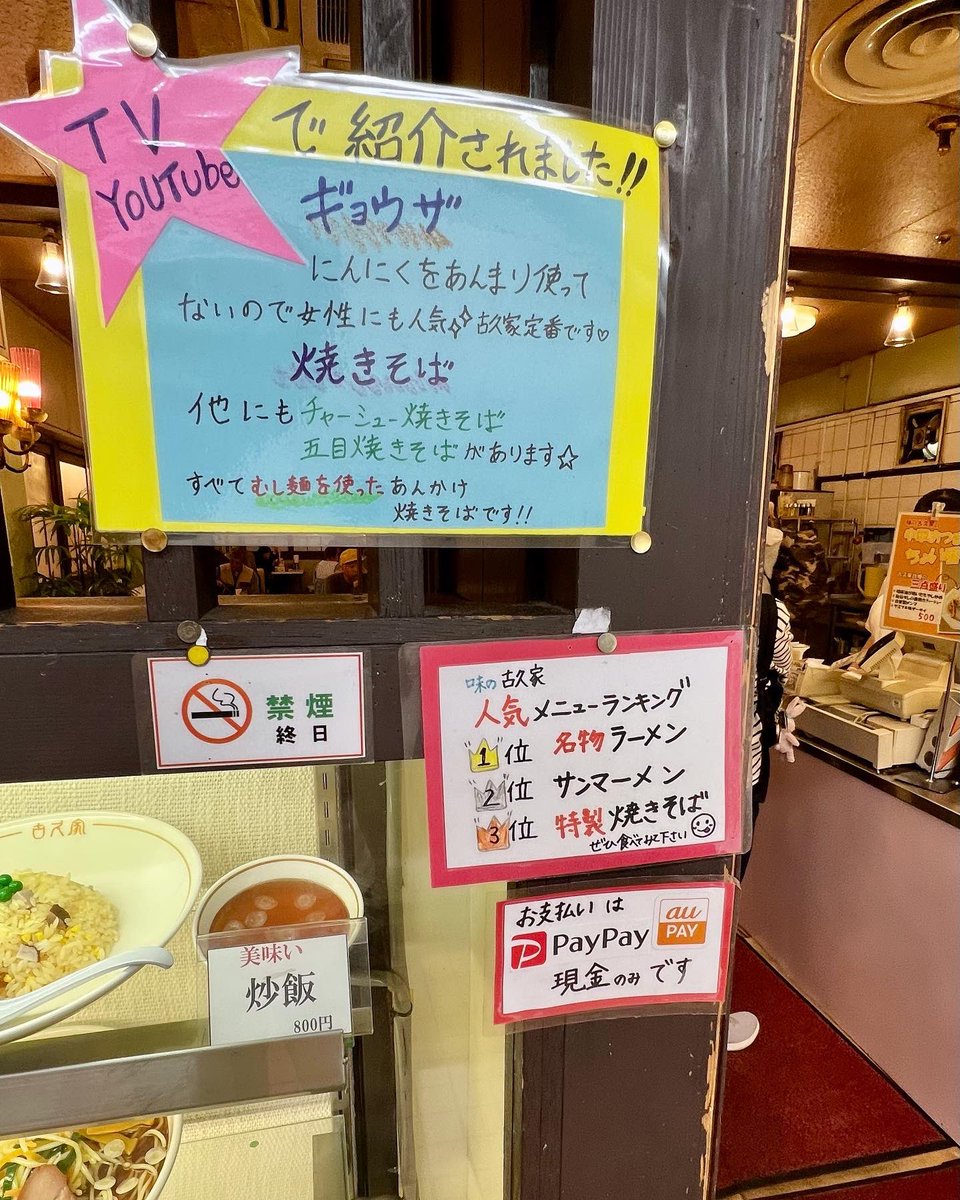 TV
YouTube
で紹介されました!!
ギョウザ
にんにくをあんまり使って
ないので女性にも人気✨古久家定番です♡
焼きそば
他にもチャーシュー焼きそば
五目焼きそばがあります☆
すべてむし麺を使ったあんかけ
焼きそばです!!
禁煙
終日
味の古久家
人気メニューランキング
1位 名物ラーメン
2位 サンマーメン
3位 特製焼きそば
ぜひ食べてみて下さい
お支払いは
PayPay
au
PAY
現金のみです
古久家
美味い
炒飯
800円
三点盛り
500